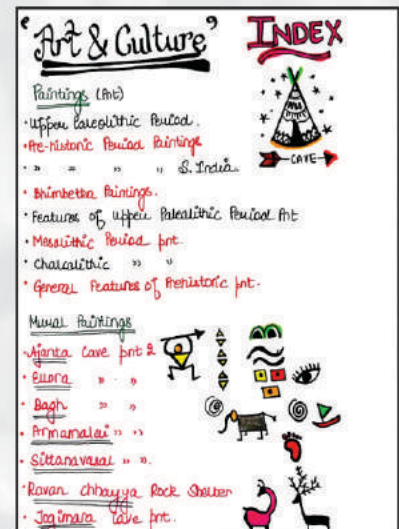 "Art & Culture"
INDEX
Paintings (Pnt)
• Upper Paleolithic Period.
• Pre-historic Period Paintings
• " " " " S. India.
CAVE
• Bhimbetka Paintings.
• Features of Upper Palealithic Period Pnt
• Mesolithic Period pnt.
• Chalcolithic " "
• General Features of Prehistoric pnt.
Mural Paintings
• Ajanta Cave pnt 2
• Ellora " " "
• Bagh " "
• Armamalai " "
• Sittanavasal " ".
• Ravan Chhayya Rock Shelter
• Jogimara Cave pnt.